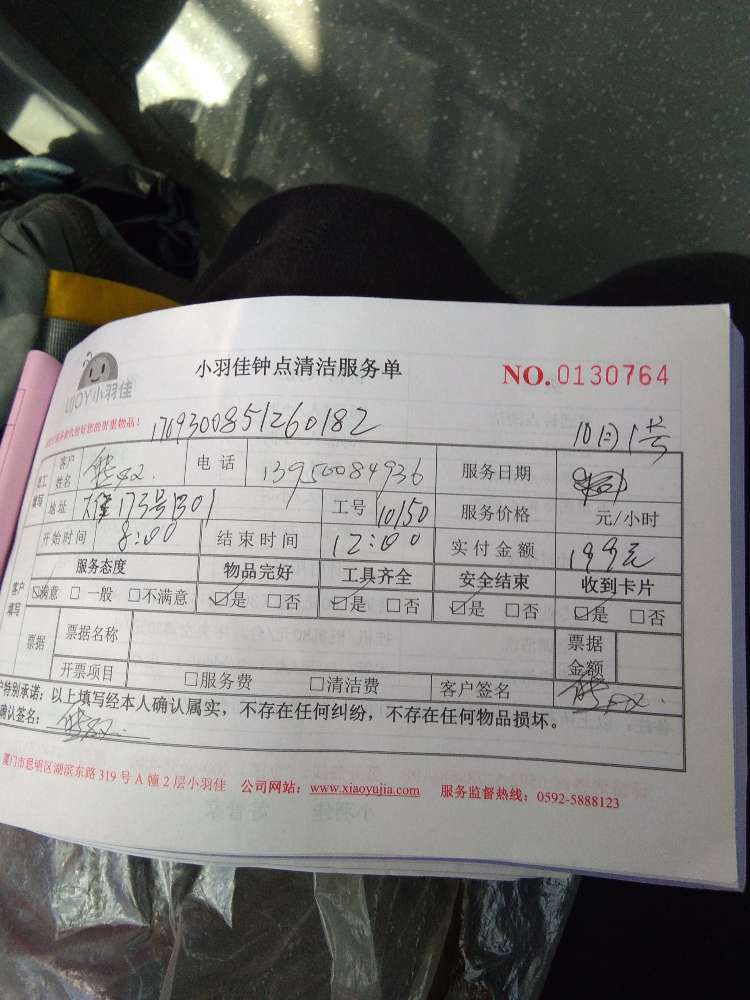 小羽佳钟点清洁服务单 NO.0130764
UJOY小羽佳
的贵重物品! 1709300851260182 10月1号
员工填写 客户姓名 熊双 电话 13950084936 服务日期
地址 173号1301 工号 10150 服务价格 元/小时
开始时间 8:00 结束时间 12:00 实付金额 199元
客户填写 服务态度 物品完好 工具齐全 安全结束 收到卡片
☑满意 □一般 □不满意 ☑是 □否 ☑是 □否 ☑是 □否 ☑是 □否
票据 票据名称 票据金额
开票项目 □服务费 □清洁费 客户签名 熊双
户特别承诺:以上填写经本人确认属实,不存在任何纠纷,不存在任何物品损坏。
确认签名: 熊双
厦门市思明区湖滨东路 319 号 A 幢 2 层小羽佳 公司网站:www.xiaoyujia.com 服务监督热线:0592-5888123